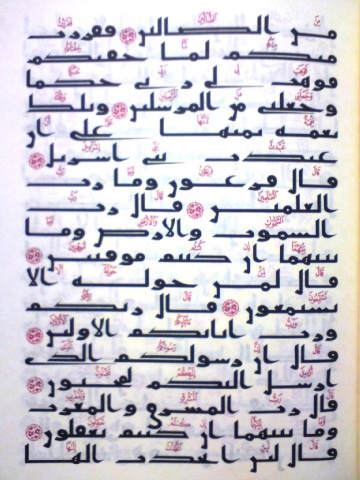 من الضالين ففررت
منكم لما خفتكم
فوهب لي ربي حكما
وجعلني من المرسلين وتلك
نعمة تمنها علي ان
عبدت بني اسريل
قال فرعون وما رب
العلمين قال رب
السموت والارض وما
بينهما ان كنتم موقنين
قال لمن حوله الا
تستمعون قال ربكم
ورب ابائكم الاولين
قال ان رسولكم الذي
ارسل اليكم لمجنون
قال رب المشرق والمغرب
وما بينهما ان كنتم تعقلون
قال لئن اتخذت الها